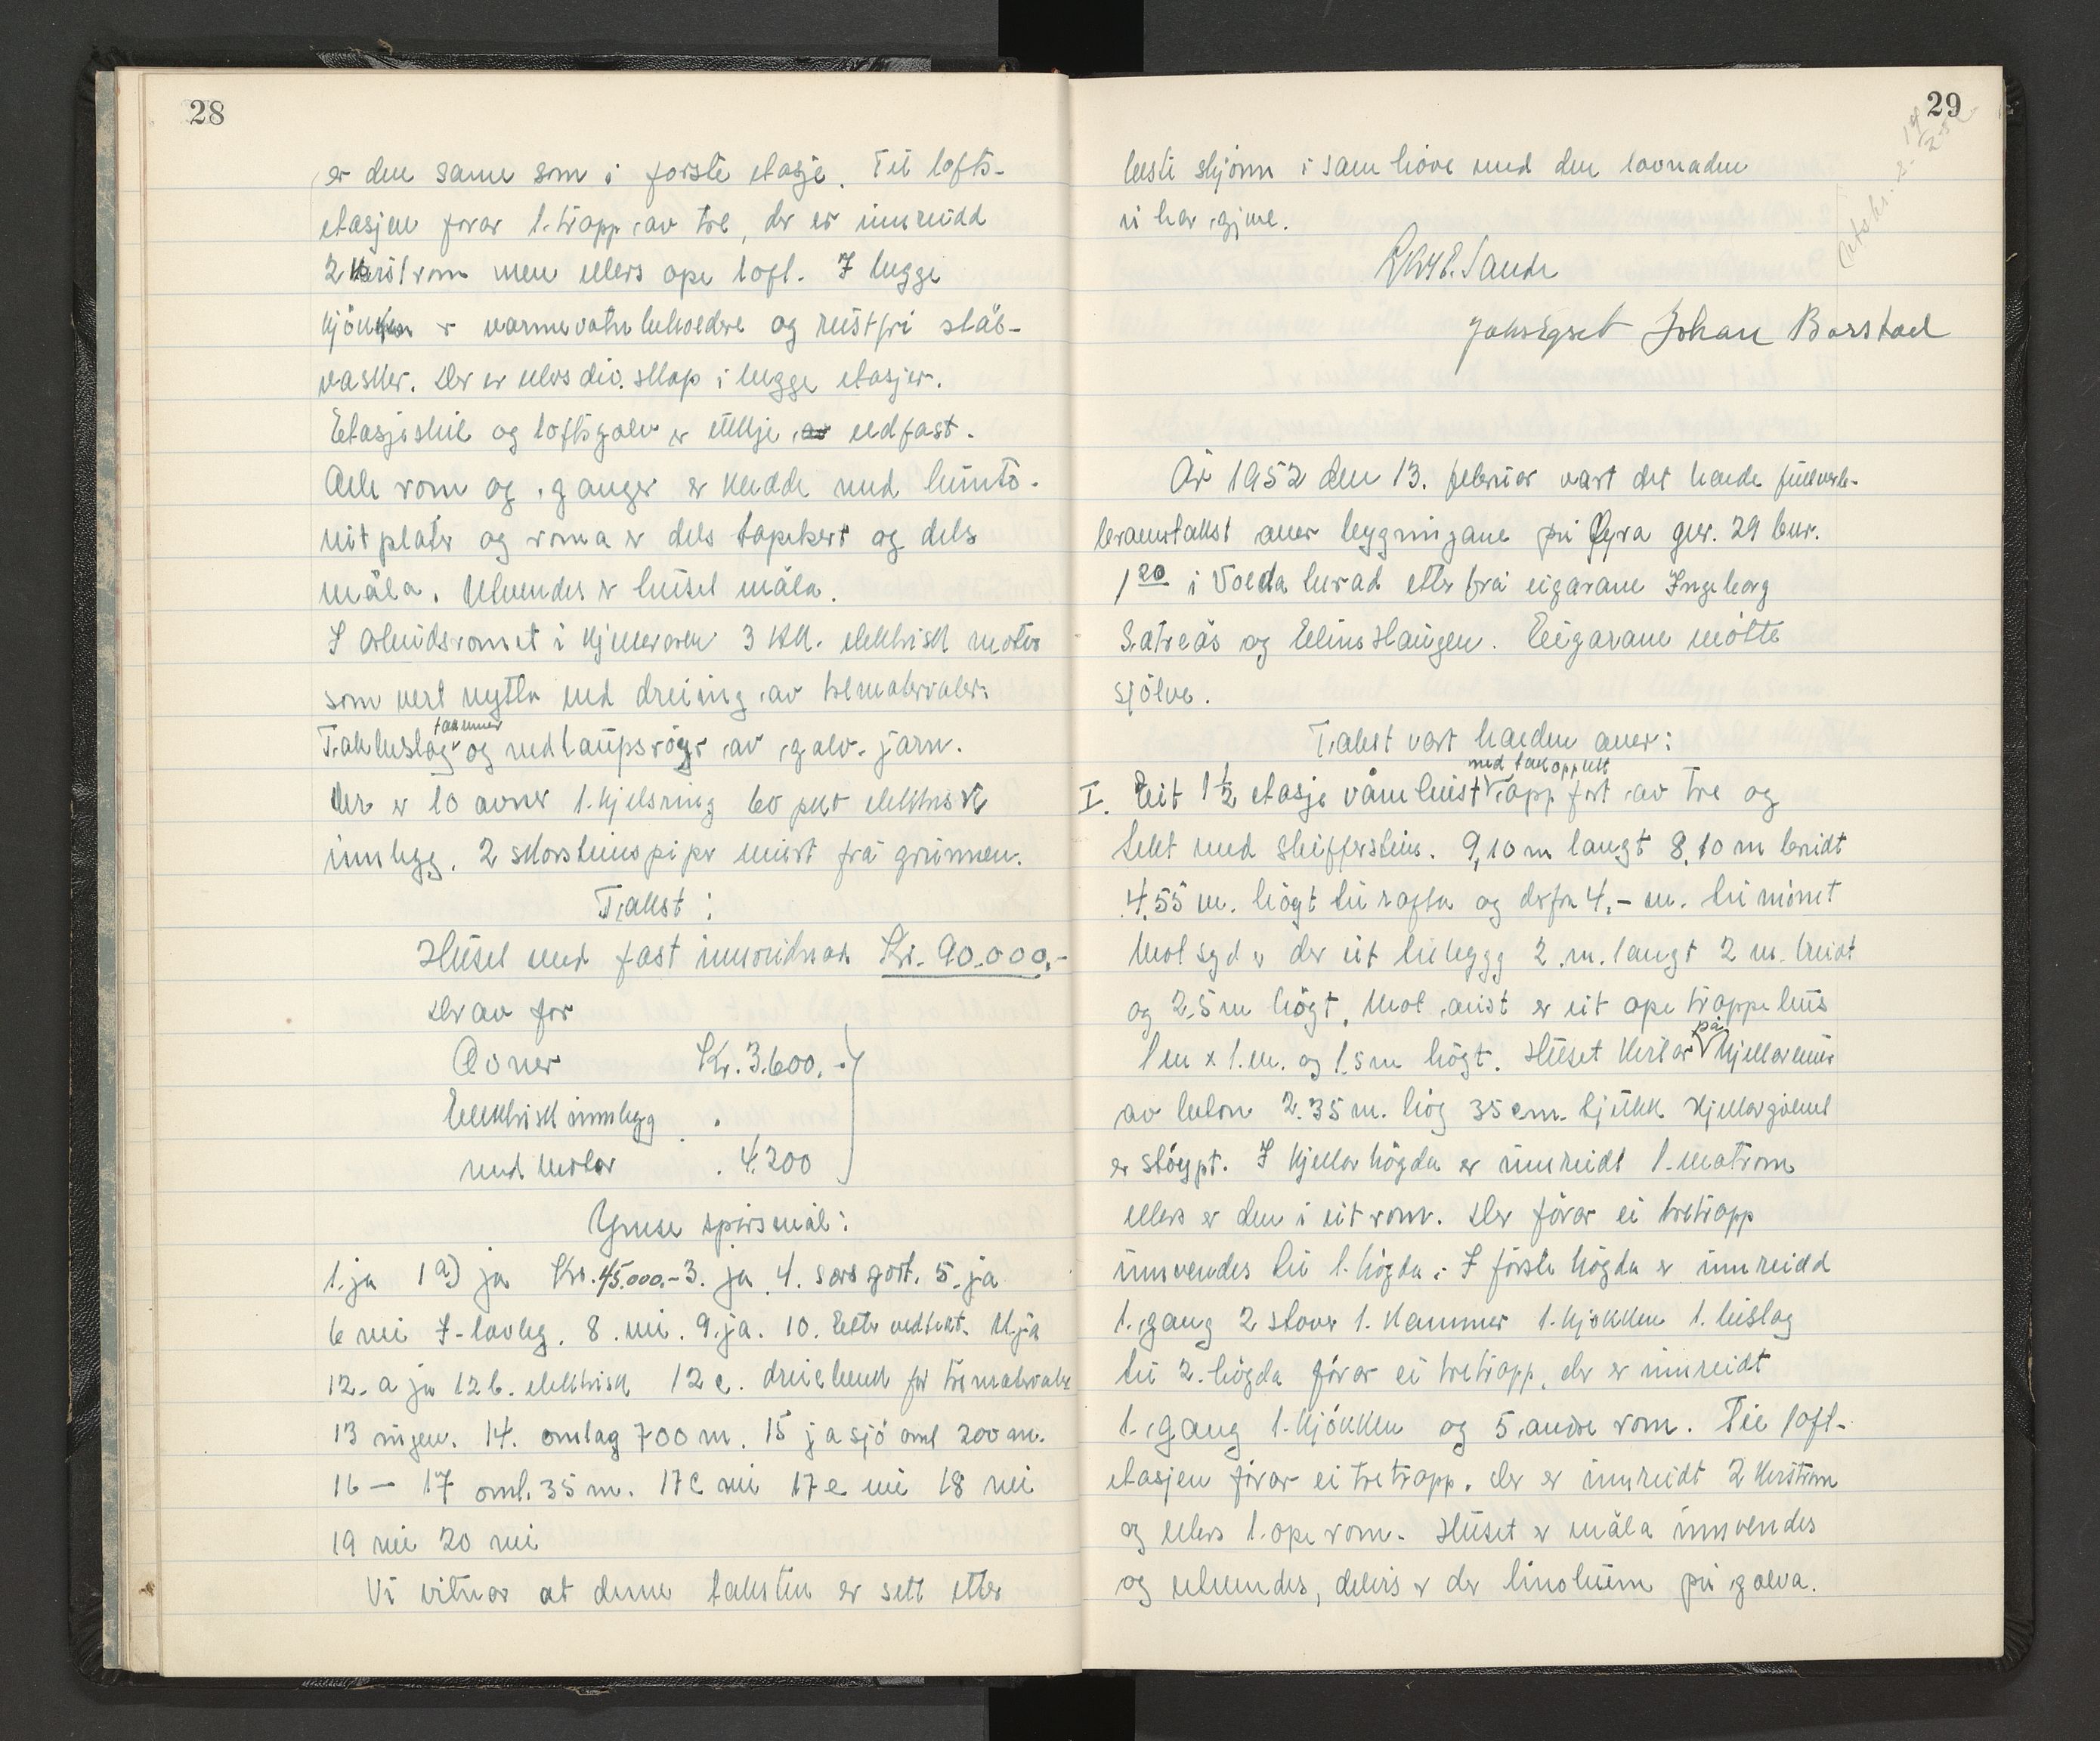 28
er den same som i første etasje. Til lofts-
etasjen førar 1. trapp av tre, der er innreidd
2 kvistrom men ellers ope loft. I begge
kjökken er varmevatnbeholdere og rustfri stål-
vasker. Der er elles div. skap i begge etasjer.
Etasjeskil og loftsgolv er ikkje eldfast.
Alle rom og ganger er kledde med hunto-
nitplater og roma er dels tapetsert og dels
måla. Utvendes er huset måla.
I arbeidsromet i kjelleren 3 HK. elektrisk motor
som vert nytta ved dreiing av trematerialer.
Takbeslag takrenner og nedlaupsrøyr av galv. jarn.
Der er 10 omner 1. kjelsring 60 pkt elektrisk
innlegg. 2 skorsteinspiper murt frå grunnen.
Takst:
Huset med fast innreidnad Kr. 90.000,-
Derav for
Omner Kr. 3.600.-
Elektrisk innlegg
med motor . 4.200
Ymse spörsmål:
1. ja 1 a) ja Kr. 45.000.- 3. ja 4. særs godt. 5. ja
6 nei 7 - lovleg. 8. nei. 9. ja. 10. Etter vedtekt. 11. ja
12. a ja 12 b. elektrisk 12 c. dreiebenk for trematerialer
13 ingen. 14. omlag 700 m. 15 ja sjö oml 200 m.
16 — 17 oml. 35 m. 17 c nei 17 e nei 18 nei
19 nei 20 nei
Vi vitnar at denne taksten er sett etter
29
beste skjönn i samhöve med den lovnaden
vi har gjeve.
Sande
Johan Barstad
År 1952 den 13. februar vart det halde fullverde-
branntakst over bygningane på Øyra gnr. 29 bnr.
120 i Volda herad etter frå eigarane Ingeborg
Sætreås og Eline Haugen. Eigarane møtte
sjölve.
Takst vart halden over:
I. Eit 1½ etasje våningshus med takopplett oppfört av tre og
tekt med skifferstein. 9,10 m langt 8,10 m breidt
4,55 m. högt til rafta og derfrå 4,- m. til mönet
Mot syd er der eit tilbygg 2 m. langt 2 m. breidt
og 2.5 m högt. Mot aust er eit ope trappehus
1 m x 1. m. og 1.5 m högt. Huset kviler på kjellarmur
av betong 2.35 m. hög 35 cm. tjukk kjellargolvet
er støypt. I kjellarhögda er innreidt 1. matrom
ellers er den i eit rom. Der förar ei tretrapp
innvendes til 1. högda. I förste högda er innreidd
1. gang 2 stover 1. kammer 1. kjökken 1. bislag
til 2. högda förar ei tretrapp, der er innreidt
1. gang 1. kjökken og 5 andre rom. Til loft-
etasjen förar ei tretrapp. der er innreidt 2 kvistrom
og ellers 1. ope rom. Huset er måla innvendes
og utvendes, delvis er der linoleum på golva.